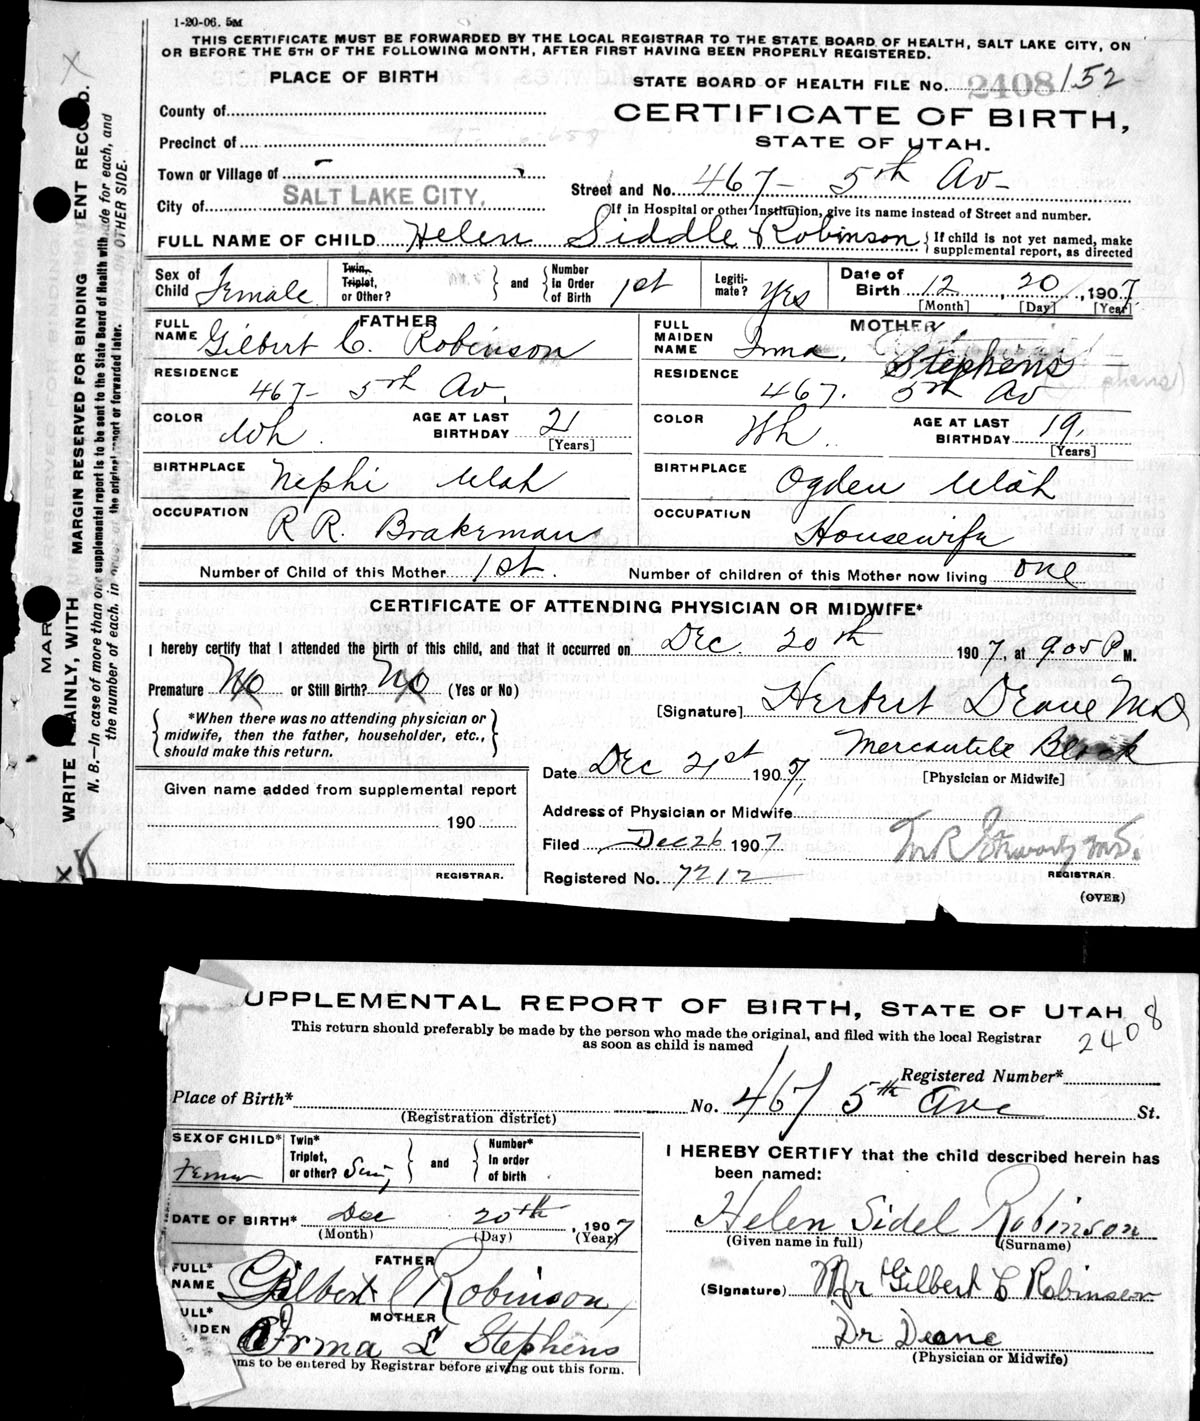 1-20-06. 5M
THIS CERTIFICATE MUST BE FORWARDED BY THE LOCAL REGISTRAR TO THE STATE BOARD OF HEALTH, SALT LAKE CITY, ON
OR BEFORE THE 5TH OF THE FOLLOWING MONTH, AFTER FIRST HAVING BEEN PROPERLY REGISTERED.
PLACE OF BIRTH
STATE BOARD OF HEALTH FILE NO. 2408 152
County of
CERTIFICATE OF BIRTH,
Precinct of
STATE OF UTAH.
Town or Village of
Street and No. 467- 5th Av-
City of SALT LAKE CITY.
If in Hospital or other Institution, give its name instead of Street and number.
FULL NAME OF CHILD Helen Siddle Robinson { If child is not yet named, make supplemental report, as directed
Sex of Child Female
Twin, Triplet, or Other? } and { Number In Order of Birth 1st
Legitimate? Yes
Date of Birth 12 20, 1907.
[Month] [Day] [Year]
FATHER
FULL NAME Gilbert C. Robinson
RESIDENCE 467- 5th Av.
COLOR Wh. AGE AT LAST BIRTHDAY 21 [Years]
BIRTHPLACE Nephi Utah
OCCUPATION R R. Brakeman
MOTHER
FULL MAIDEN NAME Irma, Stephens
RESIDENCE 467. 5th Av
COLOR Wh. AGE AT LAST BIRTHDAY 19, [Years]
BIRTHPLACE Ogden Utah
OCCUPATION Housewife
Number of Child of this Mother 1st. Number of children of this Mother now living one
CERTIFICATE OF ATTENDING PHYSICIAN OR MIDWIFE*
I hereby certify that I attended the birth of this child, and that it occurred on Dec. 20th 1907, at 9.05 P M.
Premature No or Still Birth? No (Yes or No)
[Signature] Herbert Deane MD
{ *When there was no attending physician or midwife, then the father, householder, etc., should make this return. }
Mercantile Block
Date Dec 21st 1907,
[Physician or Midwife]
Given name added from supplemental report
190
REGISTRAR.
Address of Physician or Midwife
Filed Dec 26 1907
Registered No. 7212
REGISTRAR.
(OVER)
WRITE PLAINLY, WITH MARGIN RESERVED FOR BINDING RECORD.
N. B.—In case of more than one supplemental report is to be sent to the State Board of Health with made for each, and
the number of each, in the original report or forwarded later. OTHER SIDE.
UPPLEMENTAL REPORT OF BIRTH, STATE OF UTAH
This return should preferably be made by the person who made the original, and filed with the local Registrar
as soon as child is named
2408
Registered Number*
Place of Birth* No. 467 5th Ave St.
(Registration district)
SEX OF CHILD* Twin* Triplet, or other? } and { Number* In order of birth
DATE OF BIRTH* Dec 20th, 1907
(Month) (Day) (Year)
FATHER
FULL* NAME Gilbert C Robinson
MOTHER
ULL* IDEN Irma L Stephens
ms to be entered by Registrar before giving out this form.
I HEREBY CERTIFY that the child described herein has
been named:
Helen Sidel Robinson
(Given name in full) (Surname)
(Signature) Mr Gilbert C Robinson
Dr Deane
(Physician or Midwife)